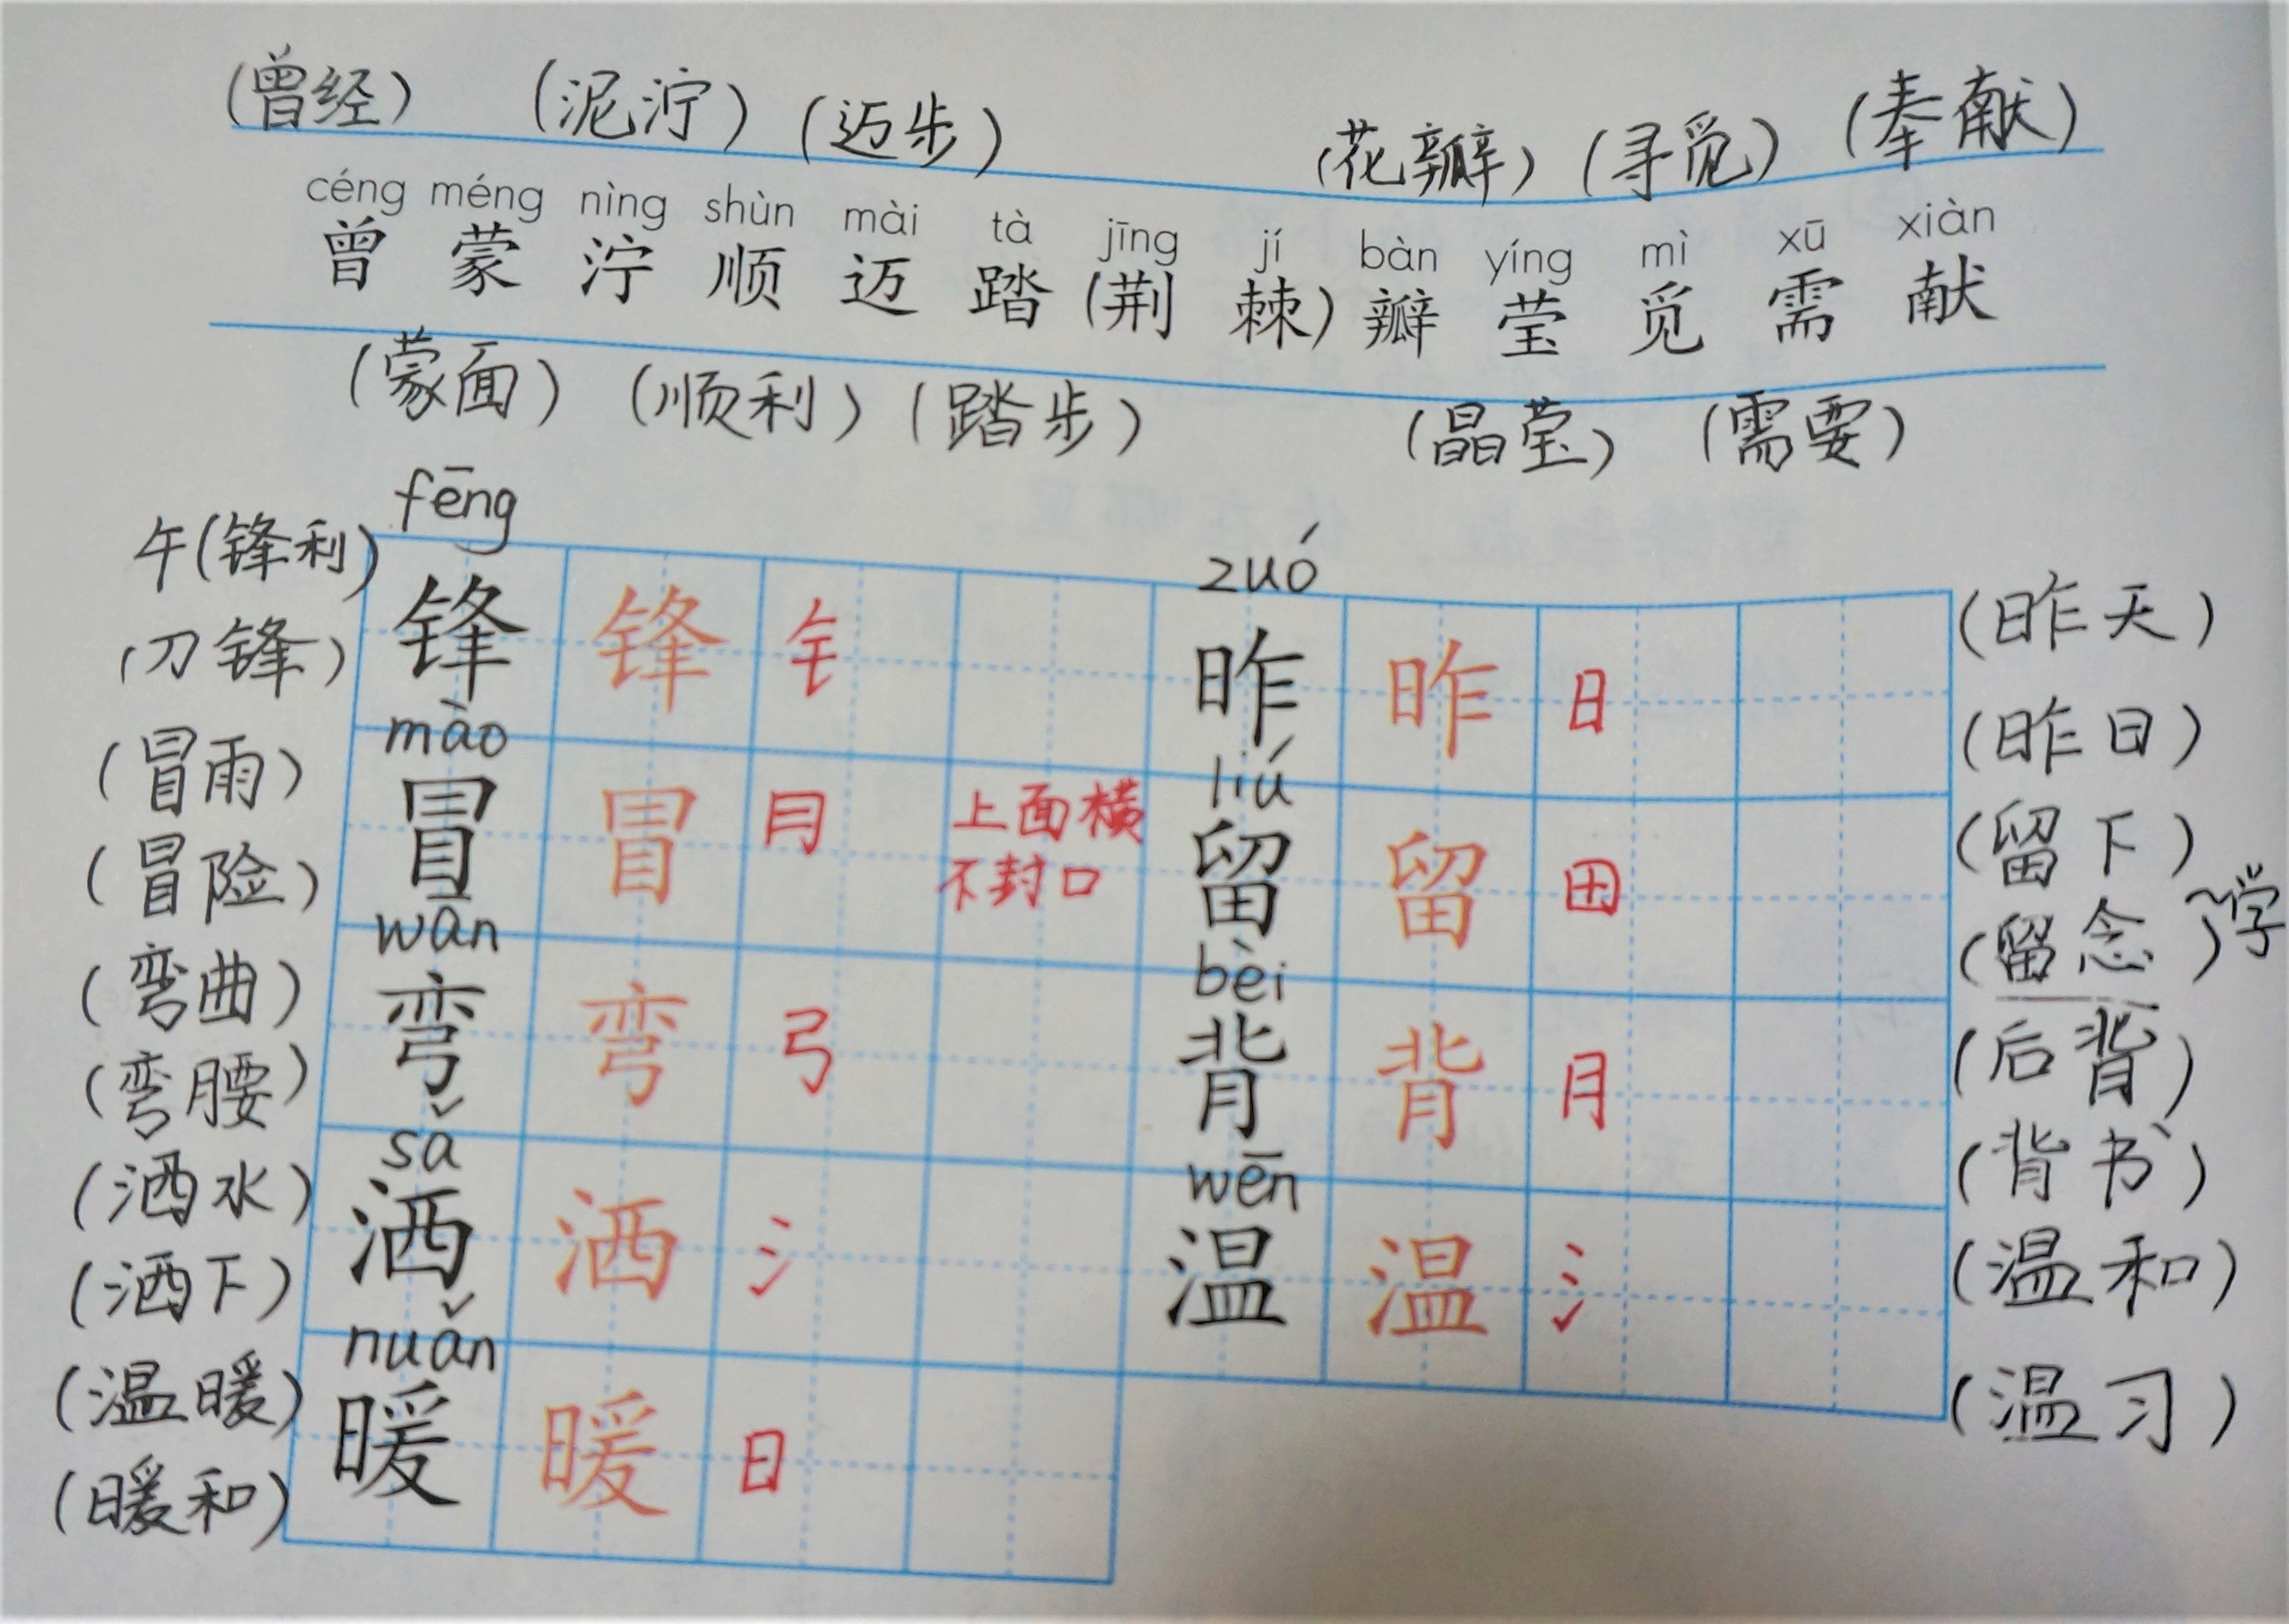 (曾经) (泥泞) (迈步) (花瓣) (寻觅) (奉献)
céng méng nìng shùn mài tà jīng jí bàn yíng mì xū xiàn
曾 蒙 泞 顺 迈 踏 (荆 棘) 瓣 莹 觅 需 献
(蒙面) (顺利) (踏步) (晶莹) (需要)
fēng
午(锋利)
(刀锋)
锋 锋 钅
mào
(冒雨)
(冒险)
冒 冒 冃 上面横
不封口
wān
(弯曲)
(弯腰)
弯 弯 弓
sǎ
(洒水)
(洒下)
洒 洒 氵
nuǎn
(温暖)
(暖和)
暖 暖 日
zuó
昨 昨 日
(昨天)
(昨日)
liú
留 留 田
(留下)
(留念)
~学
bèi
背 背 月
(后背)
(背书)
wēn
温 温 氵
(温和)
(温习)